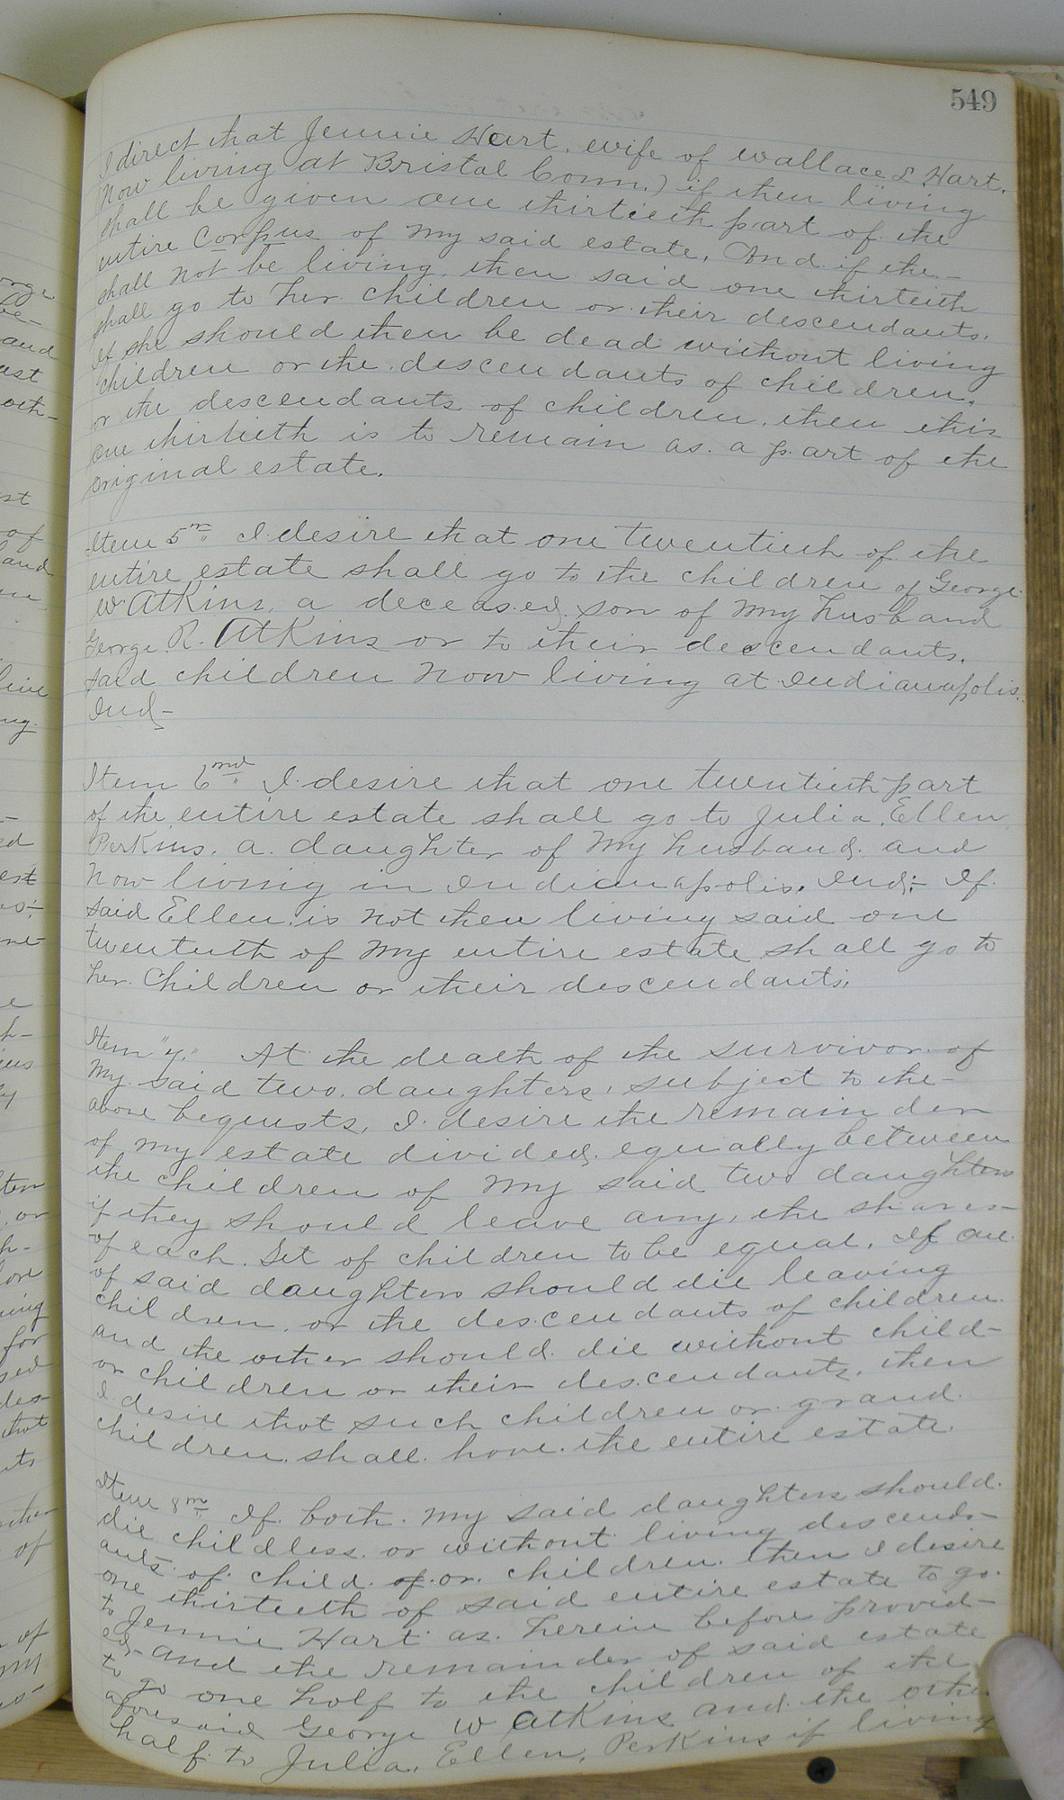 549
I direct that Jennie Hart, wife of Wallace L. Hart,
now living at Bristal Conn.) if then living
shall be given one thirtieth part of the
entire Corpus of my said estate. And if she
shall not be living, then said one thirtieth
shall go to her children or their descendants.
If she should then be dead without living
children or the descendants of children,
or the descendants of children, then this
one thirtieth is to remain as a part of the
original estate.
Item 5th. I desire that one twentieth of the
entire estate shall go to the children of George
W Atkins, a deceased, son of my husband
George R. Atkins or to their descendants.
said children now living at Indianapolis.
Ind-
Item 6nd. I desire that one twentieth part
of the entire estate shall go to Julia, Ellen
Perkins, a daughter of my husband and
now living in Indianapolis, Ind;- If
said Ellen is not then living said one
twentieth of my entire estate shall go to
her Children or their descendants.
Item "7." At the death of the survivor of
my said two daughters, subject to the-
above bequests, I desire the remainder
of my estate divided equally between
the children of my said two daughters
if they should leave any, the shares-
of each Set of children to be equal. If one
of said daughters should die leaving
children, or the descendants of children
and the other should die without child-
or children or their descendants, then
I desire that such children or grand
children shall have the entire estate.
Item 8th. If both my said daughters should
die childless or without living descend-
ants of child of or children then I desire
one thirtieth of said entire estate to go.
to Jennie Hart as herein before provid-
ed- and the remainder of said estate
to go one half to the children of the
aforesaid George W Atkins and the other
half to Julia, Ellen, Perkins if living